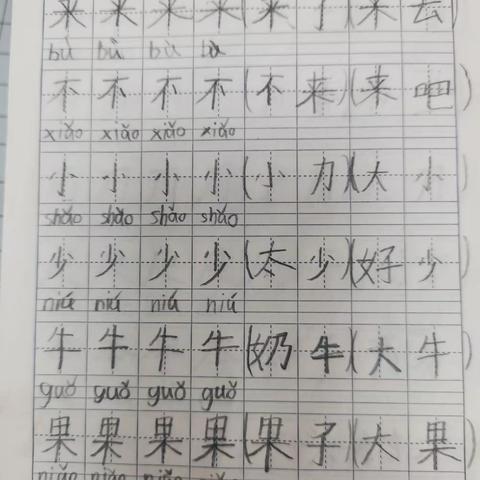 来 来 来 来 (来 了) (来 去)
bù bù bù bù
不 不 不 不 (不 来) (来 吧)
xiǎo xiǎo xiǎo xiǎo
小 小 小 小 (小 力) (大 小)
shǎo shǎo shǎo shǎo
少 少 少 少 (太 少) (好 少)
niú niú niú niú
牛 牛 牛 牛 (奶 牛) (大 牛)
guǒ guǒ guǒ guǒ
果 果 果 果 (果 子) (大 果)
niǎo niǎo niǎo